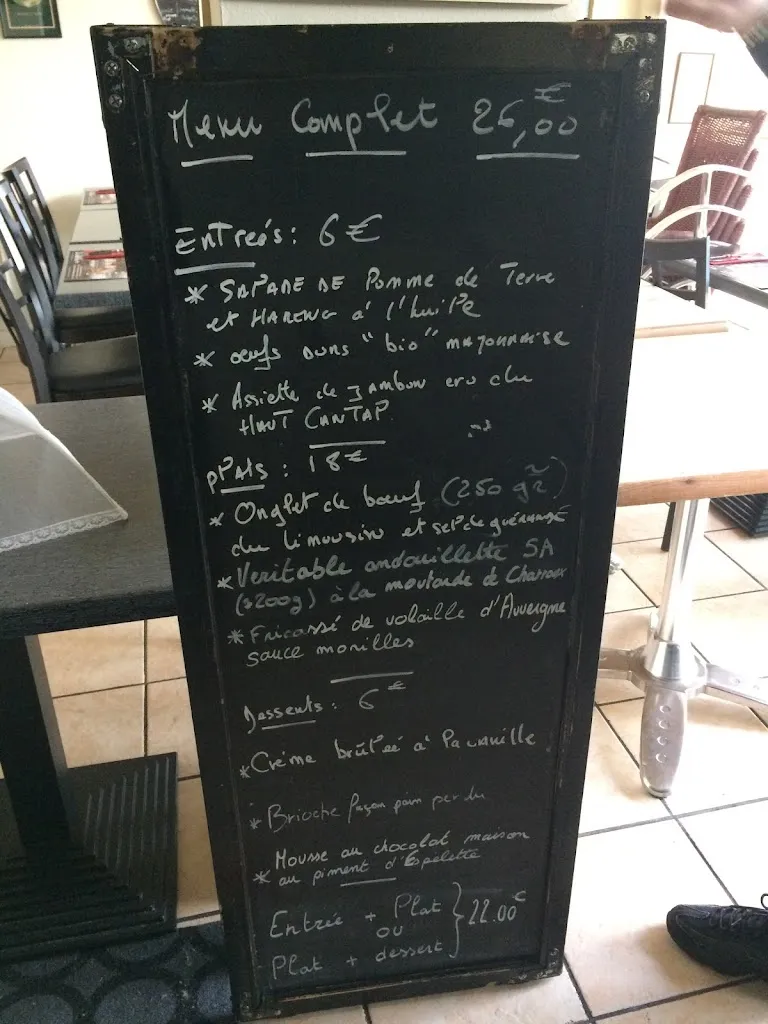 Menu Complet 26,00€
Entreés: 6€
* SALADE DE Pomme de Terre
et HARENG à l'huile
* œufs DURS "bio" MAYONNAISE
* Assiette de Jambon cru du
HAUT CANTAL
plats : 18€
* Onglet de bœuf (250 gr)
du limousin et sel de guérande
* Veritable andouillette 5A
(±200g) à la moutarde de Charroux
* Fricassé de volaille d'Auvergne
sauce morilles
Desserts : 6€
* Crème brûleé à la vanille
* Brioche façon pain perdu
Mousse au chocolat maison
* au piment d'Espelette
Entrée + Plat
ou } 22.00€
Plat + dessert